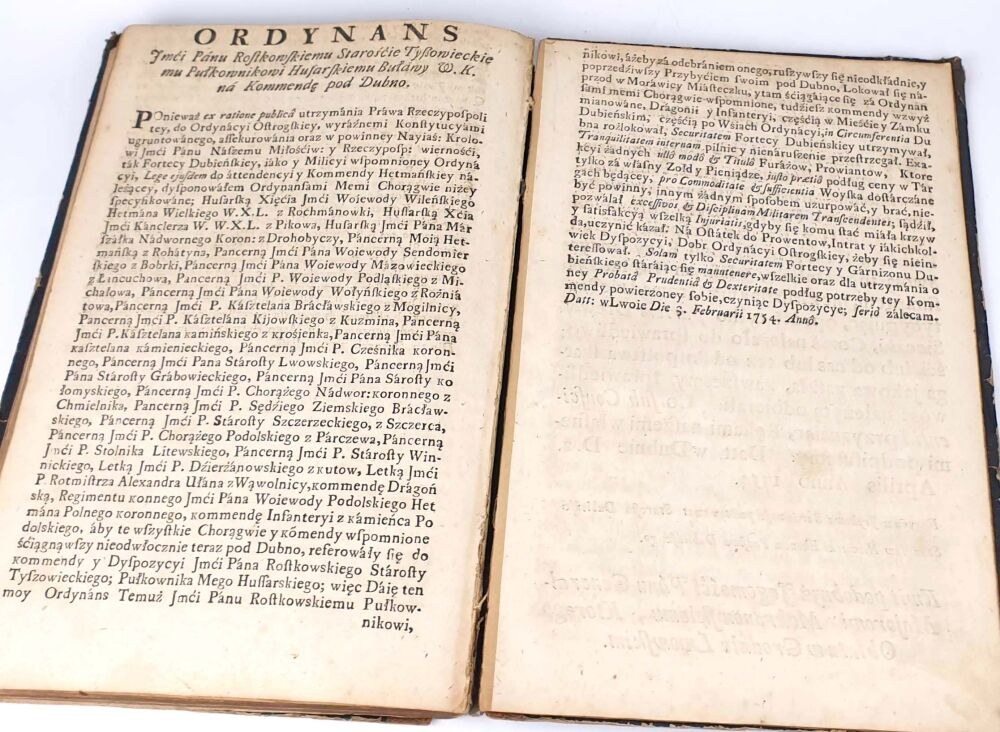 ORDYNANS
Jmći Pánu Rostkowskiemu Starośćie Tyszowieckie
mu Pułkownikowi Husarskiemu Buławy W. K.
ná Kommendę pod Dubno.
POnieważ ex ratione publicâ utrzymánia Práwa Rzeczypospoli
tey, do Ordynácyi Ostrogskiey, wyráźnemi Konstytucyami
ugruntowánego, assekurowánia oraz w powinney Nayiáś: Krolo-
wi Jmći Pánu Nászemu Miłośćiw: y Rzeczyposp: wiernośći,
ták Fortecy Dubieńskiey, iáko y Milicyi wspomnioney Ordyná
cyi, Lege ejusdem do áttendencyi y Kommendy Hetmáńskiey ná-
leżącey, dysponowáłem Ordynansámi Memi Chorągwie niżey
specyfikowáne; Husarską Xięćia Jmći Woiewody Wileńskiego
Hetmána Wielkiego W.X.L. z Rochmánowki, Hussarską Xćia
Jmći Kánclerza W. W.X.L. z Pikowa, Husarską Jmći Pána Már
szałka Nádwornego Koron: z Drohobyczy, Páncerną Moią Het-
máńską z Rohátyna, Páncerną Jmći Pána Woiewody Sendomier
skiego z Bobrki, Páncerną Jmći Pána Woiewody Mázowieckiego
z Łáncuchowa, Páncerną Jmći P. Woiewody Podláskiego z Mi-
chałowa, Páncerną Jmći Pána Woiewody Wołyńskiego z Roźniá
towa, Páncerną Jmći P. Kásztelana Brácławskiego z Mogilnicy,
Páncerną Jmći P. Kásztelána Kijowskiego z Kuzmina, Páncerną
Jmći P. Kásztelana káminskiego z krośienka, Páncerną Jmći Pána
kásztelana kámienieckiego, Páncerną Jmći P. Cześnika koron-
nego, Páncerną Jmći Pana Stárosty Lwowskiego, Páncerną Jmći
Pána Stárosty Grábowieckiego, Páncerną Jmći Pána Sárosty ko
łomyskiego, Páncerną Jmći P. Chorążego Nádwor: koronnego z
Chmielnika, Páncerną Jmći P. Sędźiego Ziemskiego Brácław-
skiego, Páncerną Jmći P. Stárosty Szczerzeckiego, z Szczerca,
Páncerną Jmći P. Chorążego Podolskiego z Párczewa, Páncerną
Jmći P. Stolnika Litewskiego, Páncerną Jmći P. Stárosty Win-
nickiego, Letką Jmći P. Dźierżánowskiego z kutow, Letką Jmći
P. Rotmistrza Alexandra Ułána z Wąwolnicy, kommendę Drágoń
ską, Regimentu konnego Jmći Pána Woiewody Podolskiego Het
mána Polnego koronnego, kommendę Infanteryi z kámieńca Po
dolskiego, áby te wszystkie Chorągwie y kōmendy wspomnione
śćiągnąwszy nieodwłocznie teraz pod Dubno, referowáły się do
kommendy y Dyspozycyi Jmći Pána Rostkowskiego Stárosty
Tyszowieckiego; Pułkownika Mego Hussarskiego; więc Dáię ten
moy Ordynáns Temuż Jmći Pánu Rostkowskiemu Pułkow-
nikowi,
nikowi, áżeby zá odebrániem onego, ruszywszy się nieodkłádnie, y
poprzedźiwszy Przybyćiem swoim pod Dubno, Lokował się ná-
przod w Moráwicy Miásteczku, y tám śćiągáiące się zá Ordynan
sámi memi Chorągwie wspomnione, tudźiesz kommendy wzwyż
miánowáne, Drágonii y Infánteryi, częśćią w Mieśćie y Zámku
Dubieńskim, częśćią po Wśiách Ordynácyi, in Circumferentia Du
bna rozlokował, Securitatem Fortecy Dubieńskiey utrzymywał,
Tranquilitatem internam pilnie y nienáruszenie przestrzegał. Exa-
kcyi żadnych ullo modô & Titulô Furázow, Prowiantow, Ktore
tylko zá własny Zołd y Pieniądze, justo prætiô podług ceny w Tár
gách będącey, pro Commoditate & sufficentia Woyská dostárczáne
być powinny, innym żadnym sposobem uzurpowáć, y bráć, nie-
pozwalał excessivos & Disciplinam Militarem Transcendentes; sądźił,
y satisfákcyą wszelką Injuriatis, gdyby się komu stáć miáłá krzyw
dá, uczynić kázał. Ná Ostátek do Prowentow, Intrat y iákichkol-
wiek Dyspozycyi, Dobr Ordynácyi Ostrogskiey, żeby się niein-
teressował. Solam tylko Securitatem Fortecy y Gárnizonu Du-
bieńskiego stáráiąc się manutenere, wszelkie oraz dla utrzymánia o
ney Probatâ Prudentiâ & Dexteritate podług potrzeby tey Kom-
mendy powierzoney sobie, czyniąc Dyspozycye; seriò zálecam.
Datt: w Lwoie Die 9. Februarii 1754. Annô.